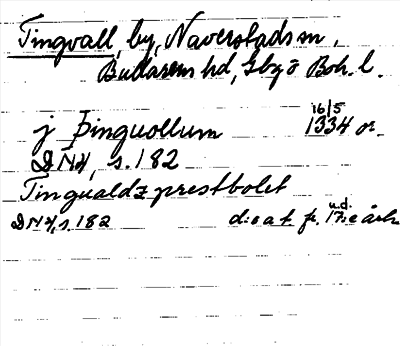 Tingvall, by, Naverstads sn,
Bullarens hd, Gbg o Boh. l.
16/5
j Þinguollum 1334 or.
DN 4, s. 182
Tingualdz prestbolet
u.d.
DN 4, s. 182 d:o a f. fr. 17:e årh.